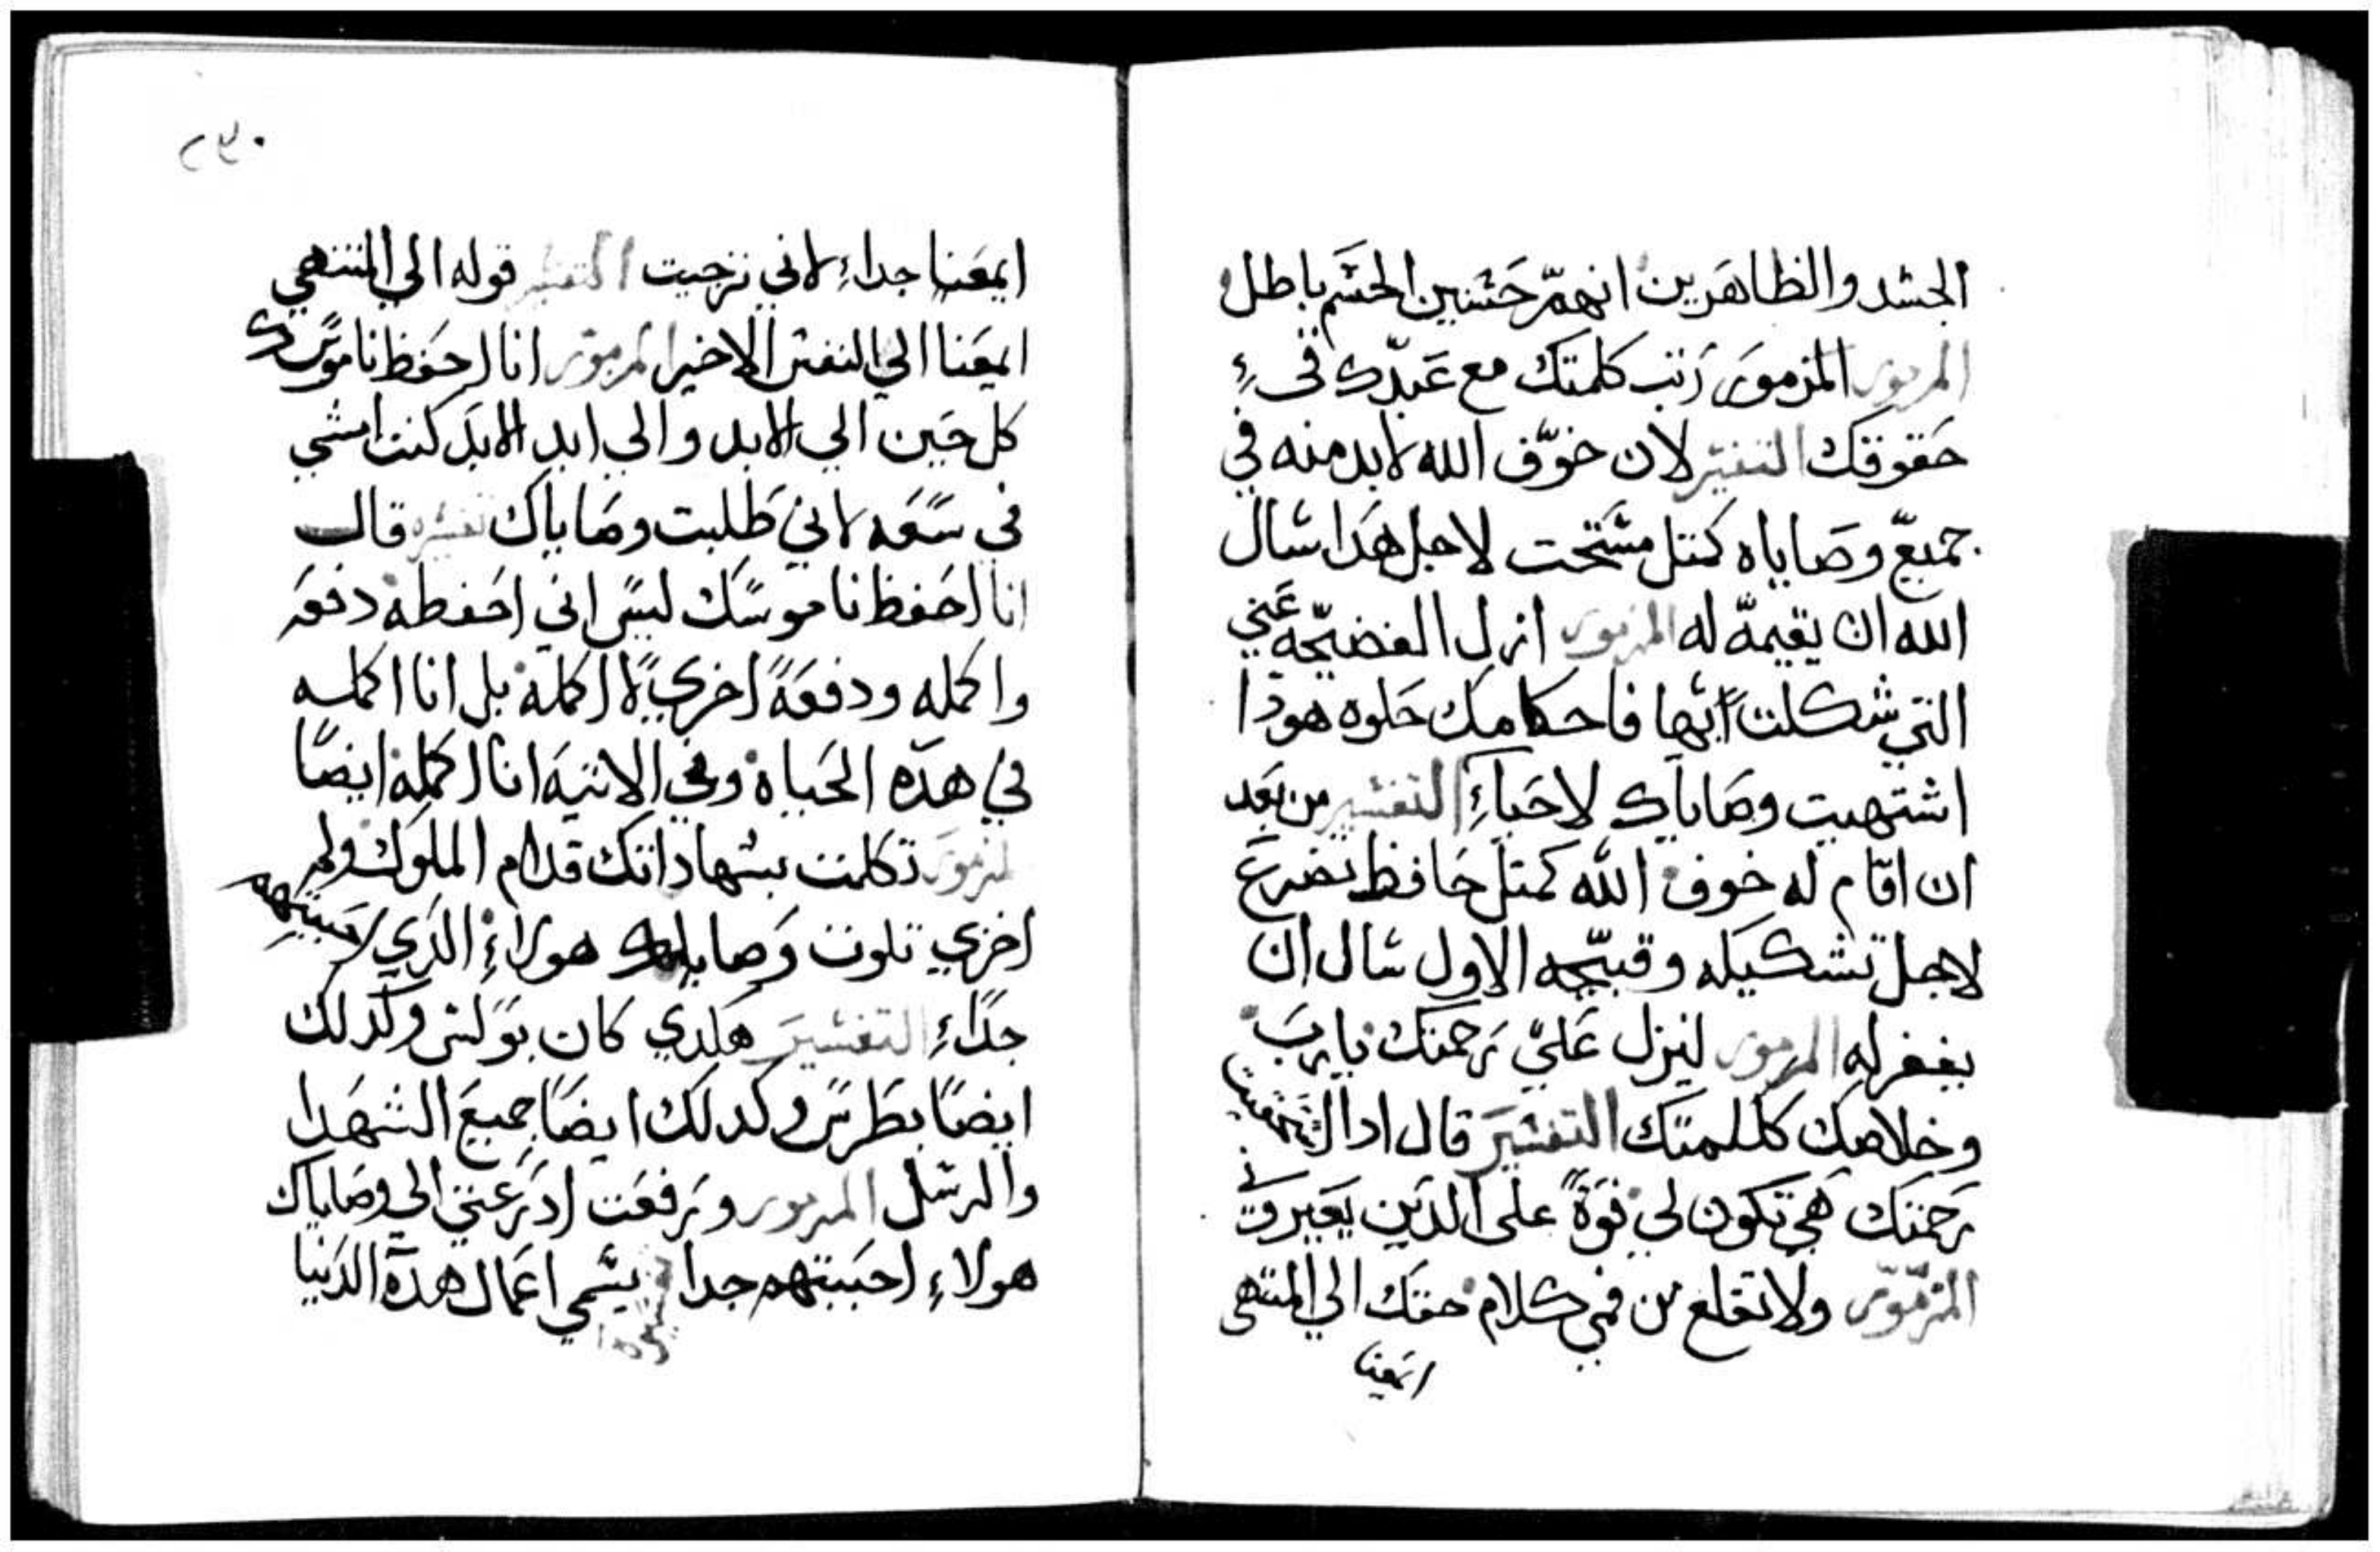 الجسد والظاهرين انهم حسنين الجسم باطل
المزمور المزمور رتب كلمتك مع عبدك في
حقوقك التفسير لان خوف الله لابد منه في
جميع وصاياه كمتل مستحت لاجل هدا سال
الله ان يقيمه له المزمور ازل الفضيحه عني
التي شكلت ابها فاحكامك حلوه هودا
اشتهيت وصاياك لاحياء التفسير من بعد
ان اقام له خوف الله كمتل حافظ تضرع
لاجل تشكيله وقبيحه الاول سال ان
يغفر له المزمور لينزل علي رحمتك يا رب
وخلاصك ككلمتك التفسير قال ادا
رحمتك هي تكون لي قوة على الدين يعيروني
المزمور ولا تقلع من فمي كلام حقك الي المنتهى
ايمعنا
٢٣٠
ايمعنا جداء لاني ترجيت التفسير قوله الي المنتهي
ايمعنا الي النفس الاخير المزمور انا احفظ ناموسك
كل حين الي الابد والي ابد الابد كنت امشي
في سعه لاني طلبت وصاياك تفسيره قال
انا احفظ ناموسك ليس اني احفظه دفعه
واكمله ودفعة اخري لا اكمله بل انا اكمله
في هده الحياة وفي الاتيه انا اكمله ايضا
المزمور تكلمت بشهاداتك قدام الملوك ولم
اخزي تلوت وصاياك هولاء الدي احببتهم
جداء التفسير هكدي كان بولس وكدلك
ايضا بطرس وكدلك ايضا جميع الشهدا
والرسل المزمور ورفعت ادرعتي الي وصاياك
هولاء احببتهم جدا يسمي اعمال هده الدنيا